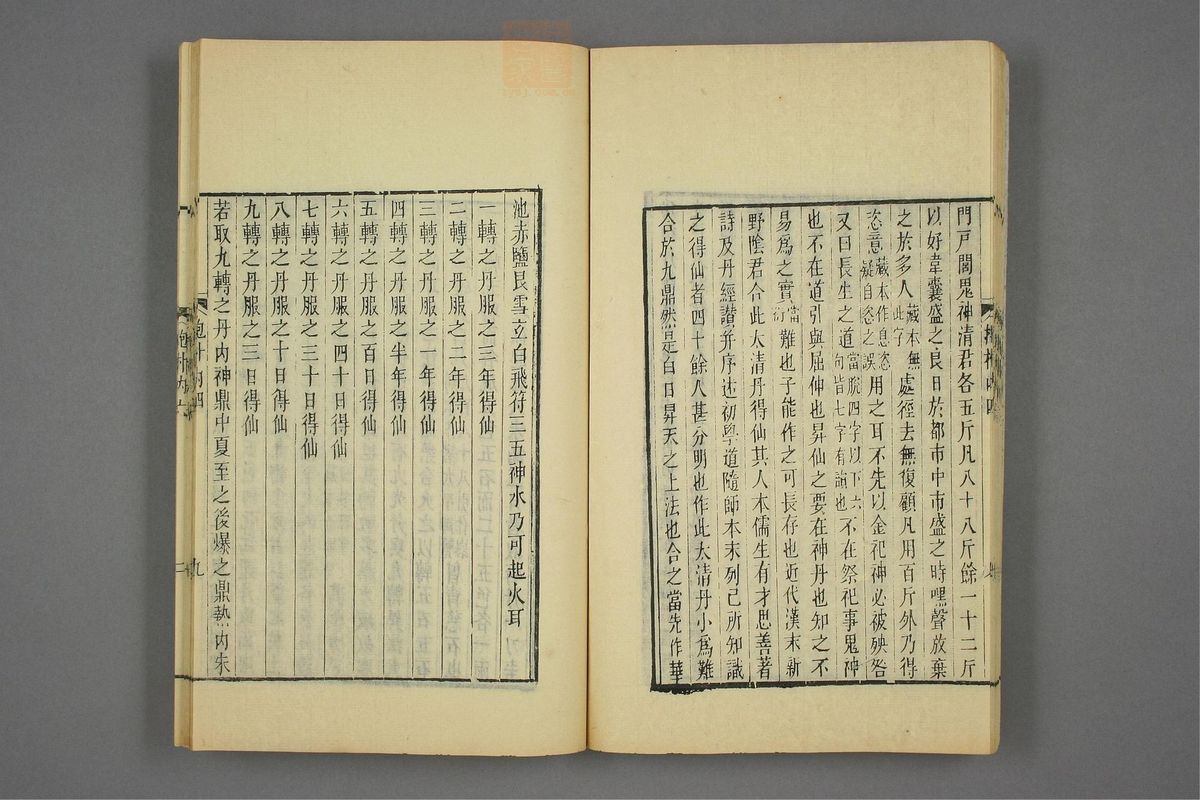 門戶閭鬼神清君各五斤凡八十八斤餘一十二斤
以好韋囊盛之良日於都市中市盛之時嘿聲放棄
之於多人藏本無此字處徑去無復顧凡用百斤外乃得
恣意藏本作息恣疑自恣之誤用之耳不先以金祀神必被殃咎
又曰長生之道當脫四字以下六句皆七字有韻也不在祭祀事鬼神
也不在道引與屈伸也昇仙之要在神丹也知之不
易爲之實當衍難也子能作之可長存也近代漢末新
野陰君合此太清丹得仙其人本儒生有才思善著
詩及丹經讚并序述初學道隨師本末列己所知識
之得仙者四十餘人甚分明也作此太清丹小爲難
合於九鼎然是白日昇天之上法也合之當先作華
池赤鹽艮雪玄白飛符三五神水乃可起火耳
一轉之丹服之三年得仙
二轉之丹服之二年得仙
三轉之丹服之一年得仙
四轉之丹服之半年得仙
五轉之丹服之百日得仙
六轉之丹服之四十日得仙
七轉之丹服之三十日得仙
八轉之丹服之十日得仙
九轉之丹服之三日得仙
若取九轉之丹內神鼎中夏至之後爆之鼎熱內朱
抱朴內四
九